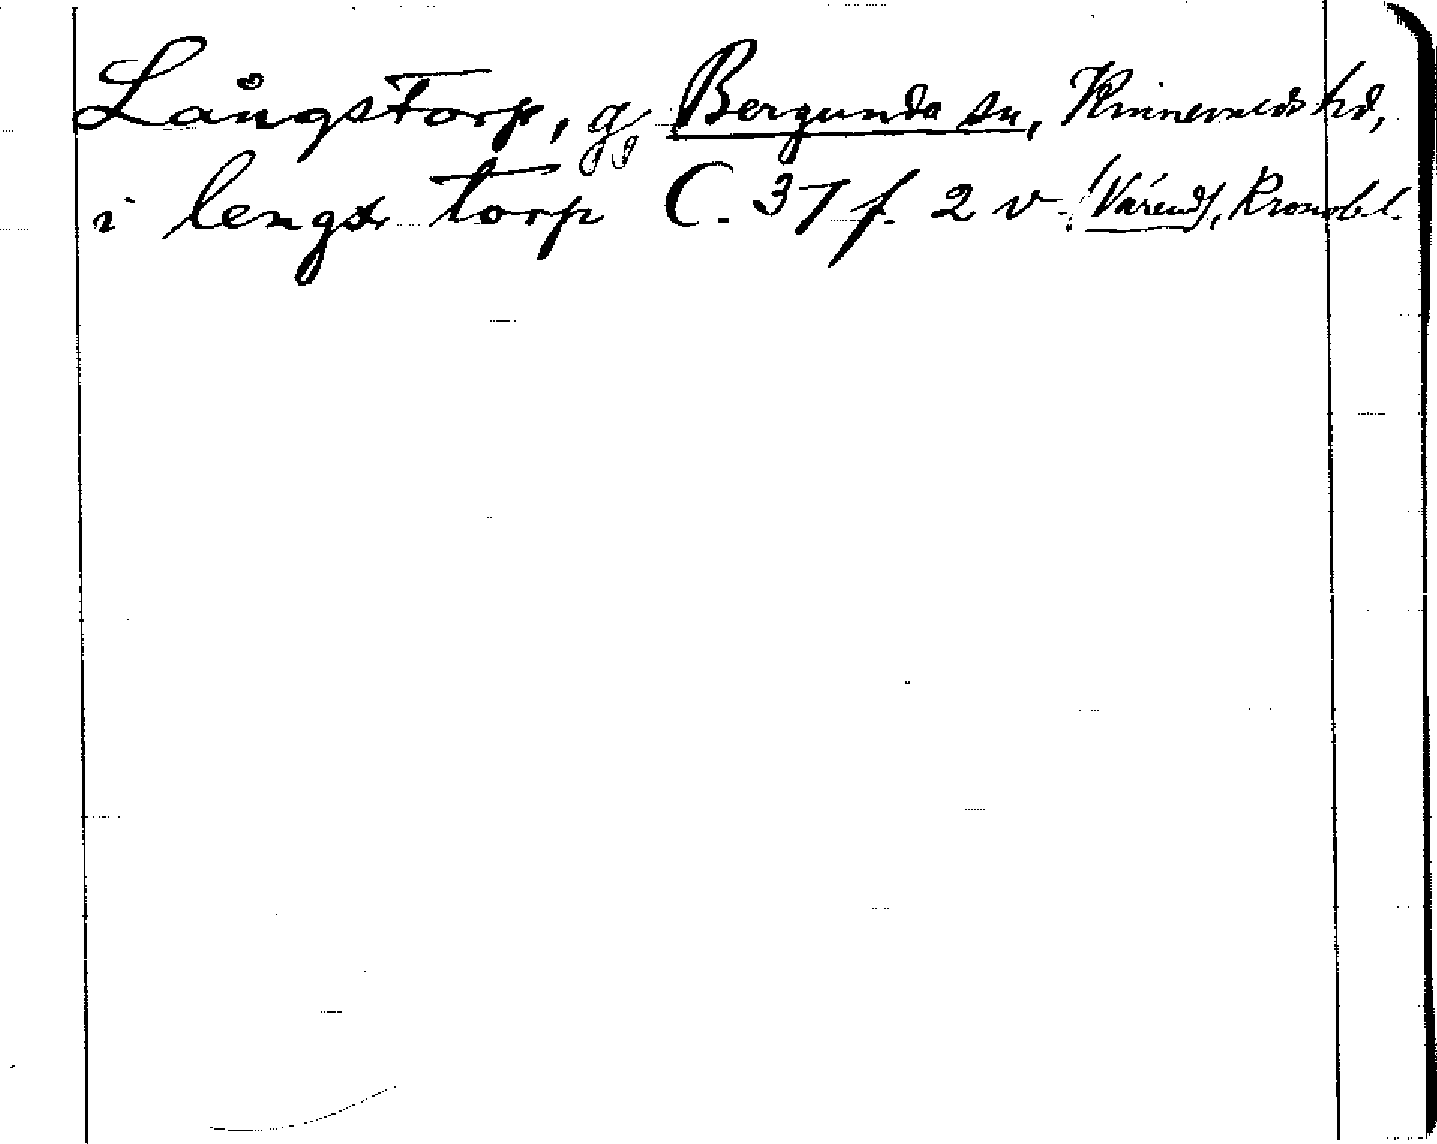 Långstorp, g, Bergunda sn, Kinnevalds hd,
i lengx torp C. 37 f. 2 v. (Värend), Kronobl.